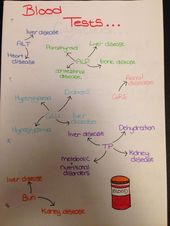 Blood
Tests...
liver disease
ALT
Heart
disease
Parathyroid
Liver disease
ALP
bone disease
intestinal
disease
Renal
diseases
Diabetes
Hyperthyroid
GLU
liver
disease
liver disease
Dehydration
TP
Kidney
disease
metabolic
nutritional
disorders
liver disease
Bun
Kidney disease
BLOOD